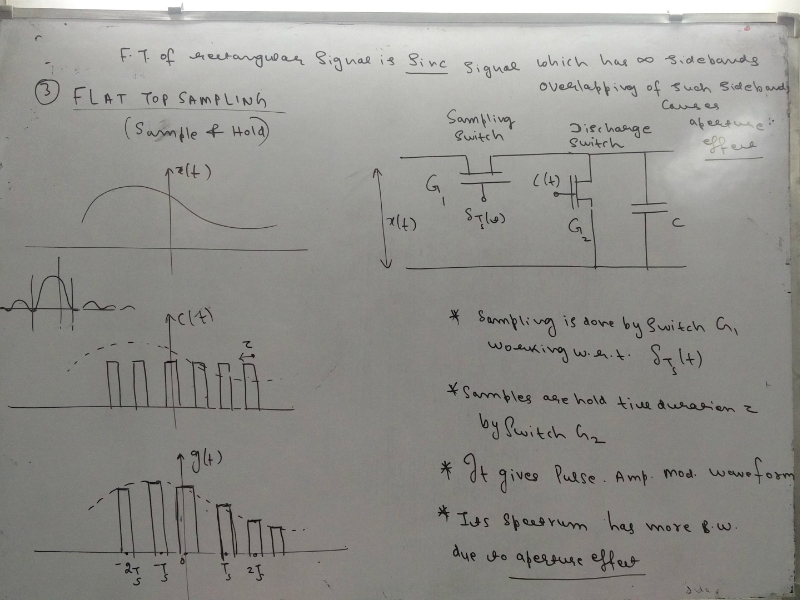 F.T. of rectangular Signal is Sinc Signal which has ∞ sidebands
overlapping of such sidebands
causes
aperture
effect
③ FLAT TOP SAMPLING
(Sample & Hold)
Sampling
Switch
Discharge
Switch
x(t)
G1
δTs(t)
C(t)
G2
C
x(t)
C(t)
τ
* Sampling is done by Switch G1
working w.r.t. δTs(t)
* Samples are hold till duration τ
by Switch G2
* It gives Pulse. Amp. mod. waveform
* Its Spectrum has more B.W.
due to aperture effect
g(t)
-2Ts -Ts 0 Ts 2Ts